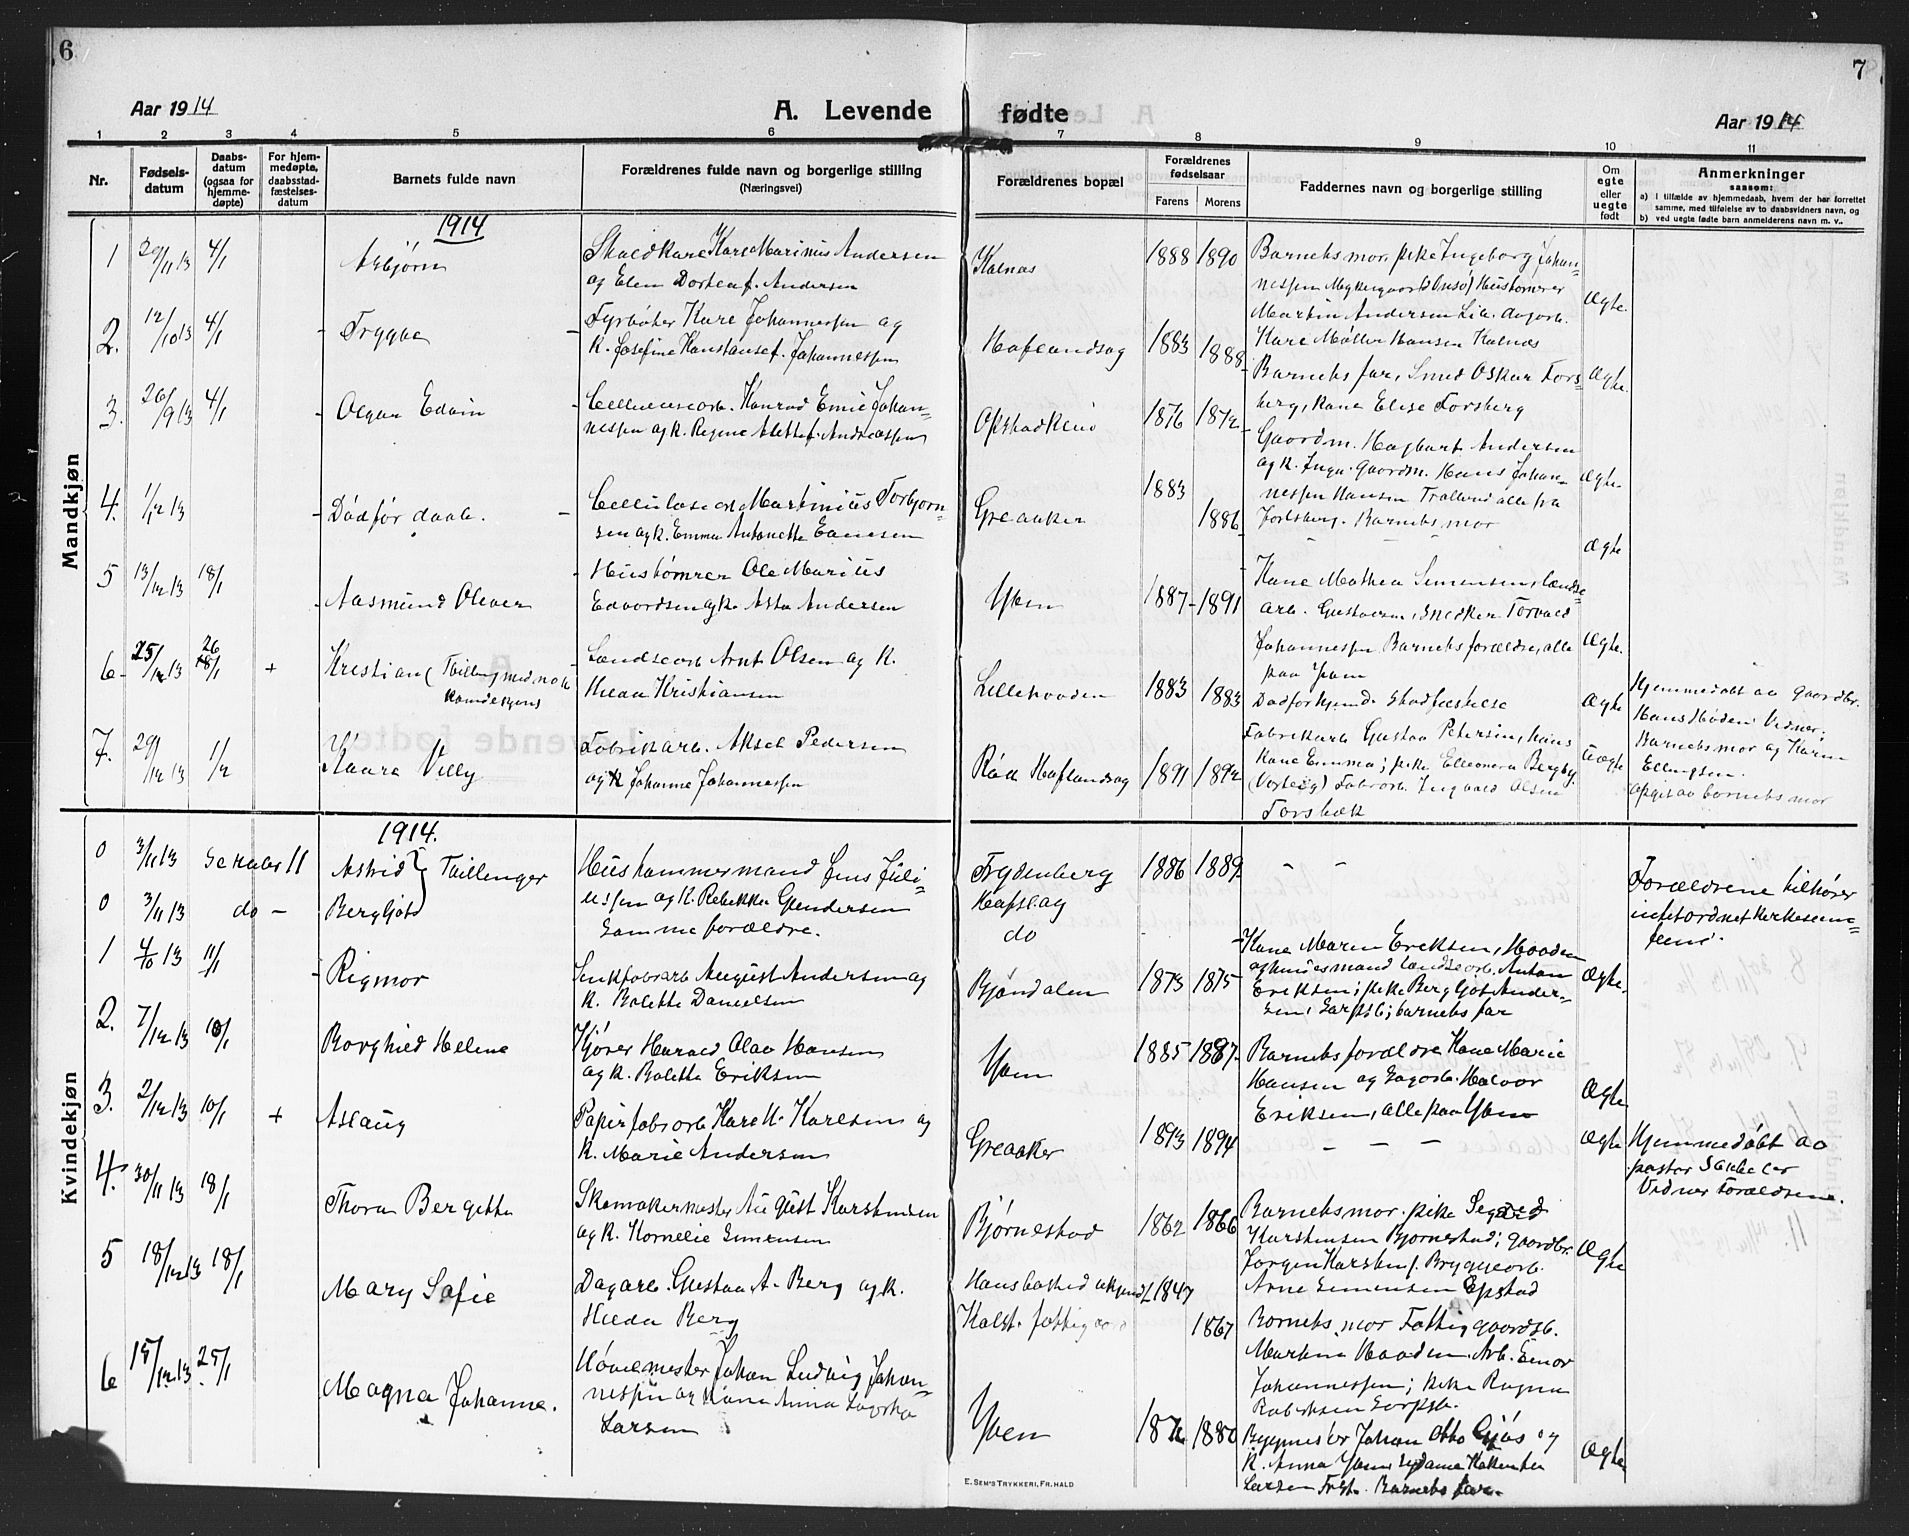 6
7
Aar 1914
A. Levende
fødte
Aar 1914
1 2 3 4 5 6 7 8 9 10 11
Nr.
Fødsels-
datum
Daabs-
datum
(ogsaa for
hjemme-
døpte)
For hjem-
medøpte,
daabsstad-
fæstelses-
datum
Barnets fulde navn
Forældrenes fulde navn og borgerlige stilling
(Næringsvei)
Forældrenes bopæl
Forældrenes
fødselsaar
Farens
Morens
Faddernes navn og borgerlige stilling
Om
egte
eller
uegte
født
Anmerkninger
saasom:
a) I tilfælde av hjemmedaab, hvem der har forrettet
samme, med tilføielse av to daabsvidners navn, og
b) ved uegte født barn anmelderens navn m. v.
Mandkjøn
1914
1 29/11 13 4/1 Asbjørn
Karl Marinus Andersen
og Elen Dortea f. Andersen
Kalnæs 1888 1890
Barnets mor, pike Ingeborg Johan-
Martin Andersen
Kare Møller Hansen Kalnæs
Ægte.
2. 12/10 13 4/1 Trygve
Fyrbøter Karl Johannessen og
K. Josefine Konstanse f. Johannessen
Haflandsøg 1883 1888
Barnets far, Smed Oskar Fors-
berg, Kone Elise Forsberg
Ægte.
3. 26/9 13 4/1 Olgar Edvin
Cellulosearb. Konrad Emil Johan-
nessen og K. Regine Alette f. Andreassen
Opstadkleiv 1876 1872
Gaardm. Hagbart Andersen
og K. Inga. Gaardm. Hans Johan-
nessen Hansen alle fra
Jorlsberg. Barnets mor
Ægte.
4. 1/12 13 Død før daab.
Cellulosearb Martinius Torbjørn-
sen og K. Emma Antonette Larsen
Greaaker 1883 1886
– – –
Ægte
5 13/12 13 18/1 Aasmund Oliver
Hustømrer Ole Marius
Edvardsen og K. Asta Andersen
Yven 1887 1891
Kone Mathea Simensen, landse-
arb. Gustavsen, Snedker Torvald
Johannessen Barnets forældre, alle
paa Yven
Ægte.
6 25/12 13 26/1 + Kristian (Tvilling med nok
Kvindekjøns
Landsearb Arnt Olsen og K.
Hilda Kristiansen
Lillehaaden 1883 1883
Død før hjemmed. Stadfæstelse
Ægte
Hjemmedøbt av Gaardbr.
Vidner;
Barnets mor og Karen
Ellingsen.
7. 29/12 13 1/2 Kaare Villy
Fabrikarb. Aksel Pedersen
og K Johanne Johannessen
Råk Haflandsøg 1891 1892
Fabrikarb Gustav Petersen, hans
Kone Emma; pike Elleonora Bergby
(Varteig) Fabrarb. Ingvald Olsen
Torsbæk
Uægte
opgit av barnets mor
Kvindekjøn
1914.
0 3/11 13 Se Kaler 11 Astrid } Tvillinger
Jens Juli-
ussen og K. Rebekka Gundersen
Trydenberg
Hafsløg 1886 1889
– –
Forældrene tilhører
0 3/11 13 do – Bergljot
Samme forældre.
do
1 4/10 13 11/1 Rigmor
August Andersen og
K. Bolette Danielsen
Bjøndalen 1873 1875
Kone Maren Eriksen, Haaden
og hendes mand landsearb. Anton
Eriksen; pike Bergljot Ander-
sen, Sarpsb; barnets far
Ægte.
2. 7/12 13 18/1 Borghild Helene
Kjører Harald Olav Hansen
og K. Bolette Eriksen
Yven 1885 1887
Barnets forældre Kone Marie
Hansen og Sagarb. Halvor
Eriksen, alle paa Yven
Ægte
3. 2/12 13 10/1 + Aslaug
Papirfabrarb Karl K. Karlsen og
K. Marie Andersen
Greaaker 1893 1894
– – –
Ægte
Hjemmedøbt av
pastor
Vidner Forældrene.
4. 30/11 13 18/1 Thora Bergitte
Skomakermester August Karstensen
og K. Kornelie Simensen
Bjørnestad 1862 1866
Barnets mor. pike Sigrid
Karstensen Bjørnestad; Gaardbr.
Jørgen Karstens. Bryggearb.
Arne Simensen Opstad
Ægte
5 18/12 13 18/1 Mary Sofie
Dagarb. Gustav A. Berg og K.
Hilda Berg
Hans bosted ukjendt
Kalst. fattiggaard 1847 1867
Barnets mor Fattiggaardsb.
Martin Haaden, Arb. Einar
Johannessen; pike Ragna
Robertsen Sarpsb.
6 15/12 13 25/1 Magna Johanne.
Johan Ludvig Johan-
nessen og Kone Anna
Larsen
Yven 1876 1880
Bygmester Johan Otto Gjøs og
K. Anna Yven
Larsen Frst. Barnets far.
Ægte
E. SEM'S TRYKKERI, FR. HALD